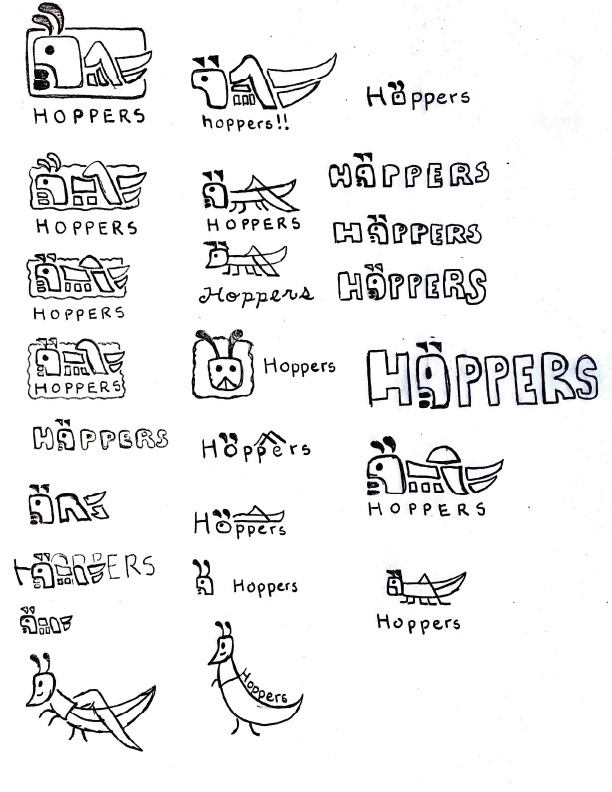 HOPPERS
HOPPERS
HOPPERS
HOPPERS
HOPPERS
HOPPERS
hoppers!!
HOPPERS
Hoppers
Hoppers
Hoppers
Hoppers
Hoppers
Hoppers
Hoppers
HOPPERS
HOPPERS
HOPPERS
HOPPERS
HOPPERS
Hoppers